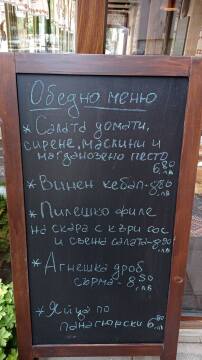 Обедно меню
* Салата домати,
сирене, маслини и
магданозено песто
6.80
лв
* Винен кебап - 8,80
лв
* Пилешко филе
на скара с къри сос
и свежа салата - 8,90
лв
* Агнешка дроб
сърма - 8,80
лв
* Яйца по
панагюрски 6.80
лв